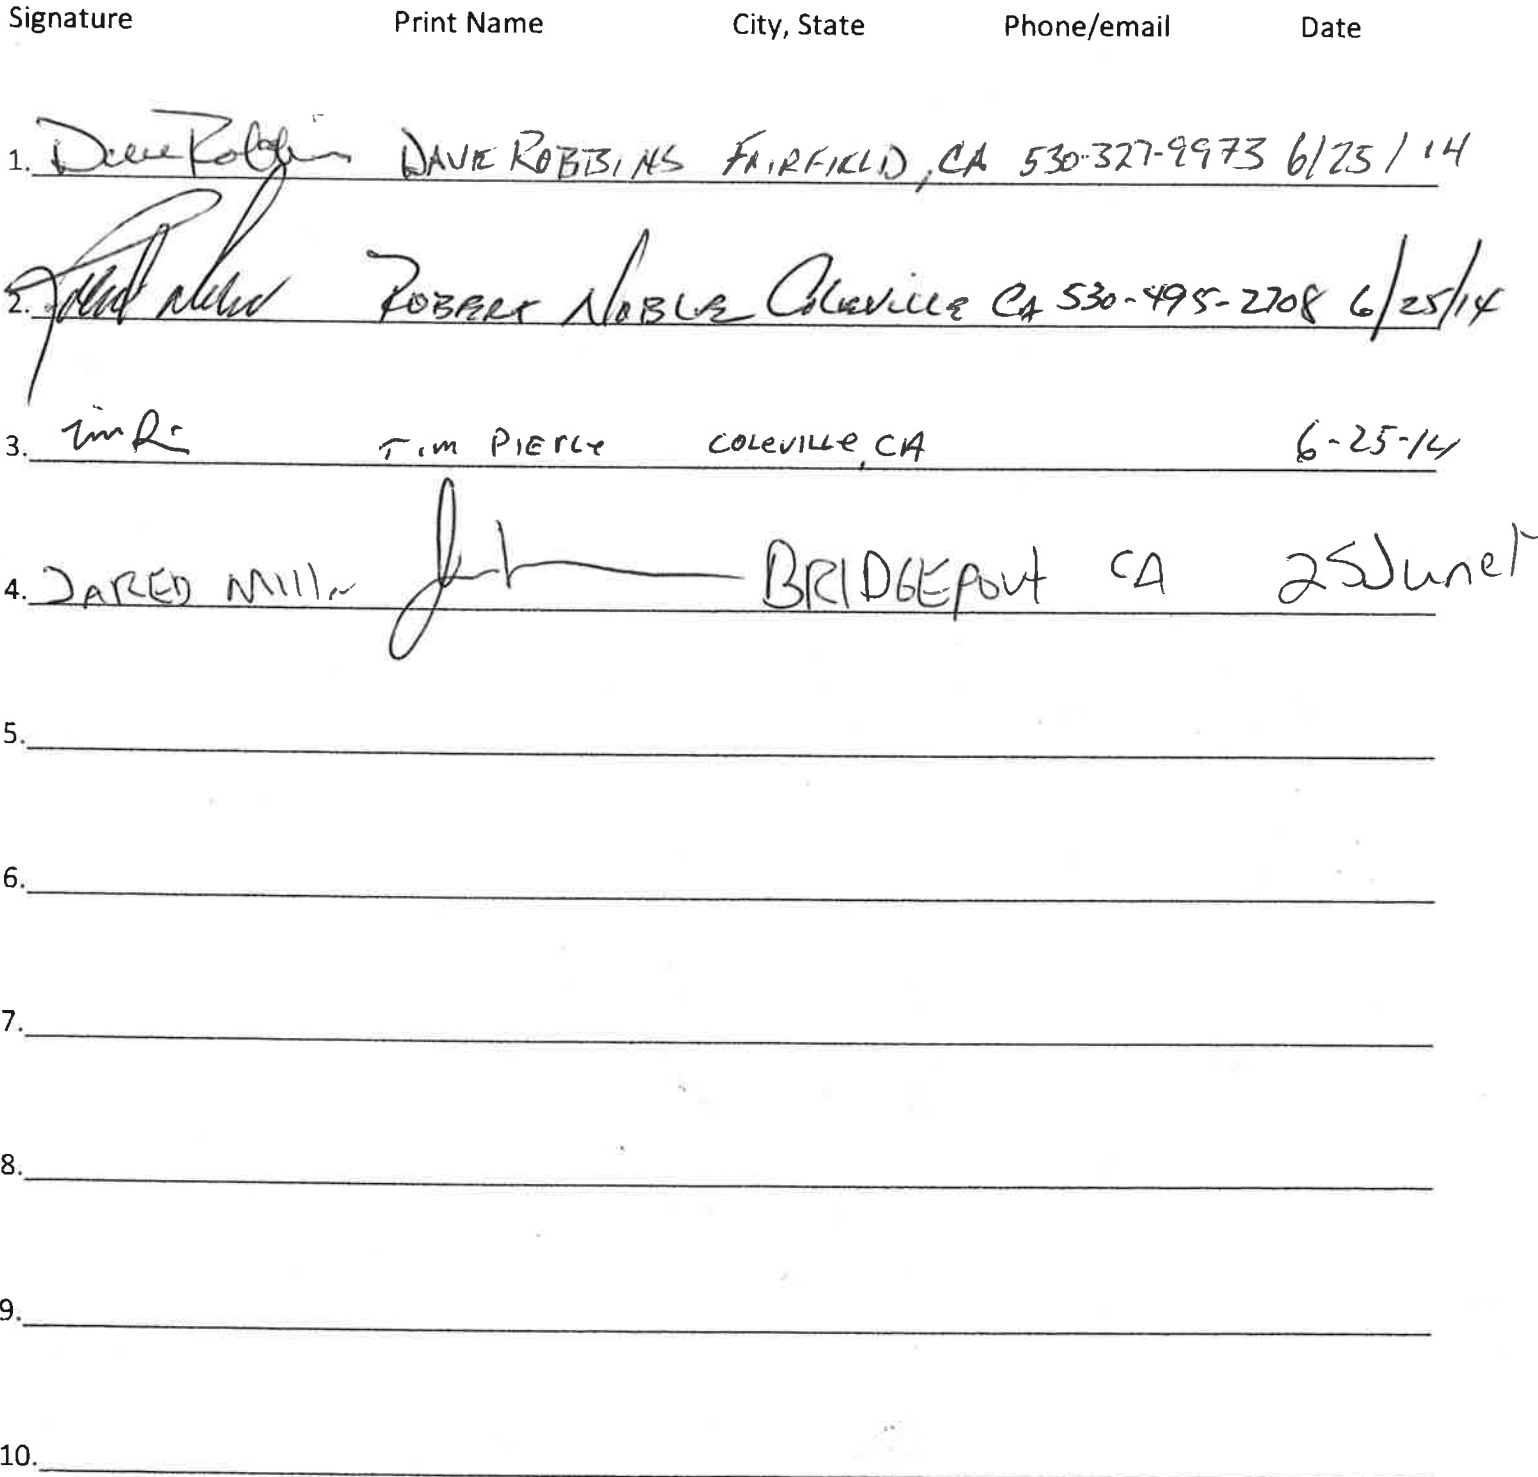 Signature Print Name City, State Phone/email Date
1. Dave Robbins DAVE ROBBINS FAIRFIELD, CA 530-327-9973 6/25/14
2. ROBERT NOBLE Coleville CA 530-495-2708 6/25/14
3. Tim PIERCE COLEVILLE, CA 6-25-14
4. JARED Mill BRIDGEPORT CA 25June1
5.
6.
7.
8.
9.
10.